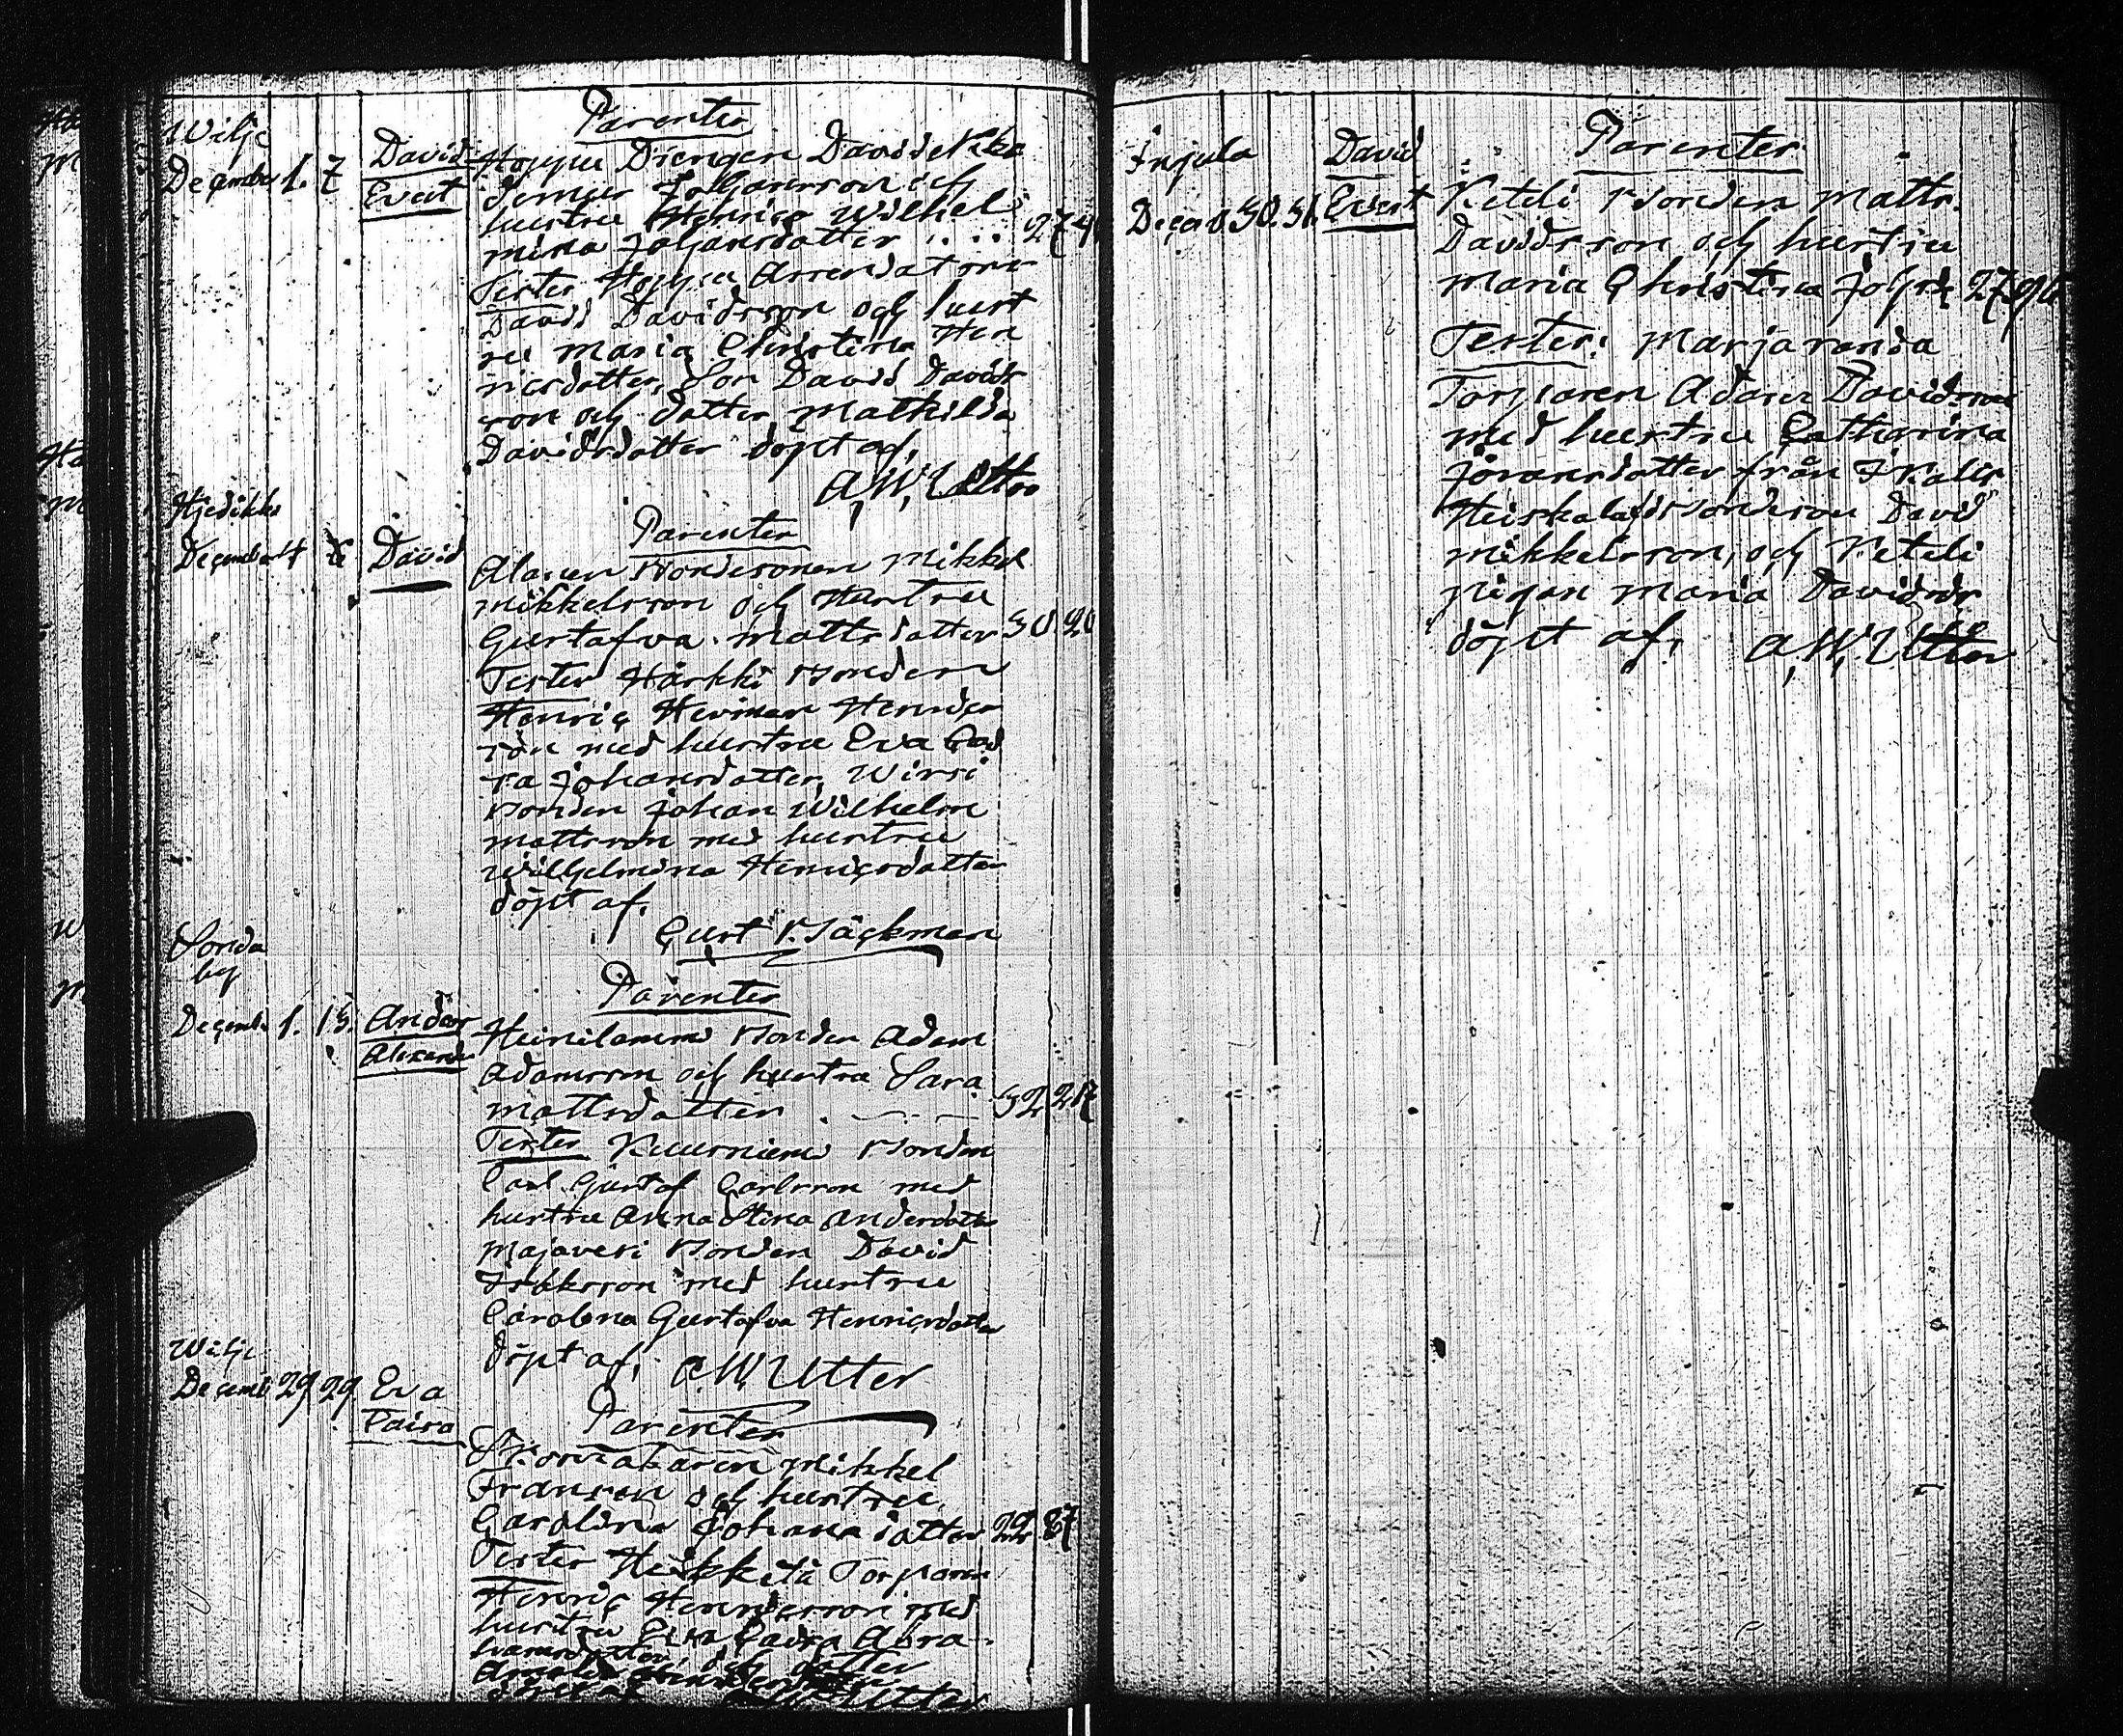 Wilje
December 1. 7
David
Evert
Parenter
Hoppu Drengen David Nika
demus Johansson och
hustru Henrica Wilhel
mina Johansdotter . . . 27 4
Tester Hoppu Arrendatorn
David Davidsson och hust
ru Maria Christina Hen
ricsdotter, Son David Davids
son och dotter Mathilda
Davidsdotter döpt af,
A, W, Utter
Hjedikko
December 4
David
Parenter
Bondesonen Mikkel
Mikkelsson och Hustru
Gustafva Mattsdotter 30. 20
Tester Härkki Bonden
Henric Herman Henrics
son med hustru Eva
Johansdotter, Wirsi
Bonden Johan Wilhelm
Mattsson med hustru
Wilhelmina Henricsdotter
döpt af,
Gust Bäckman
Sonda
by
Decemb. 1. 13.
Anders
Alexander
Parenter
Heinilammi Bonden Adam
Adamsson och hustru Sara
Mattsdotter . 32. 217
Tester Kuurniemi Bonden
Carl Gustaf Carlsson med
hustru Anna Stina Andersdotter
Majavesi Bonden David
Isaksson med hustru
Carolina Gustafva Henricsdotter
döpt af, A, W, Utter
Wilje
Decemb 29 29
Eva
Parenter
Mikkel
Fransson och hustru
Carolina Johansdotter 22. 87
Tester Heikkilä Torparen
Henric Henricsson med
hustru Eva Abra-
hamsdotter, och dotter
Utter
Injula
Decemb 30. 31.
David
Evert
Parenter
Keteli Bonden Matts
Davidsson och hustru
Maria Christina Johsd. 27. 96
Tester: Marjaranda
Torparen Adam Davidsson
med hustru Catharina
Göransdotter från Ikalis
Heiskala Bondeson David
Mikkelsson, och Keteli
pigan Maria Davidsdr
döpt af, A, W, Utter